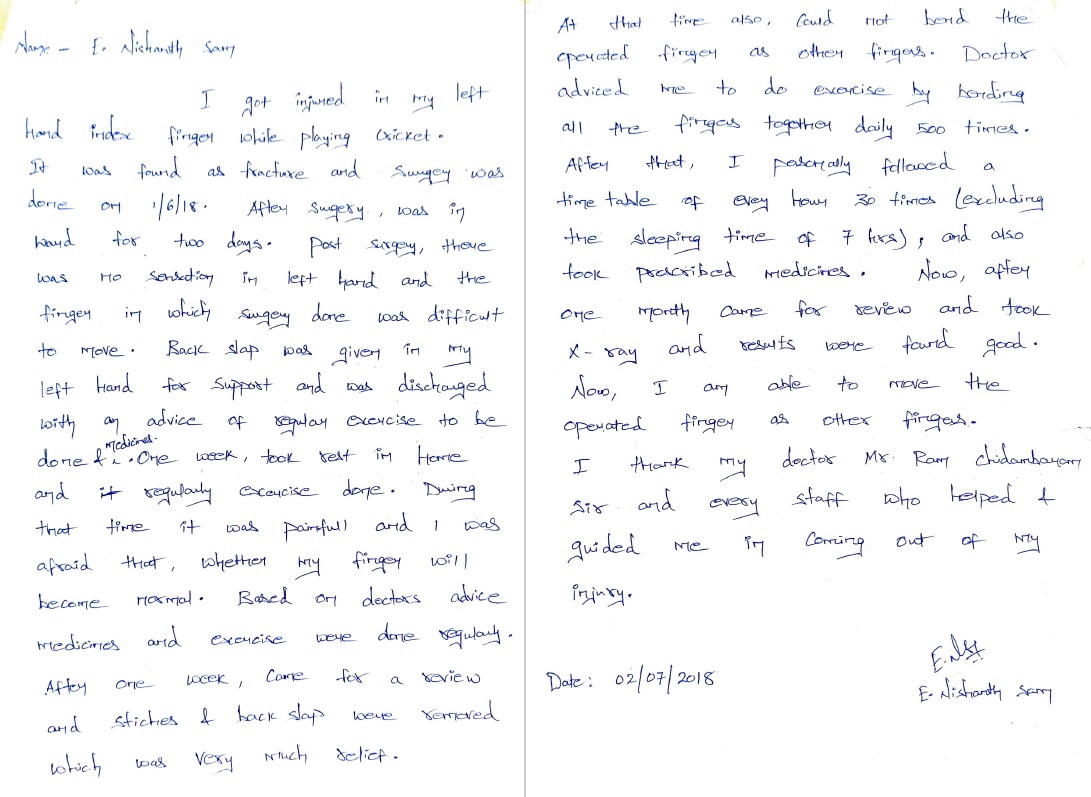 Name - E. Nishanth Samy
I got injured in my left
Hand index finger while playing cricket.
It was found as fracture and Surgey was
done on 1/6/18. After sugery, was in
ward for two days. Post surgey, there
was no sensation in left hand and the
finger in which surgey done was difficult
to move. Back slap was given in my
left hand for Support and was discharged
with an advice of regular exercise to be
done & medicines. One week, took rest in Home
and it regularly excercise done. During
that time it was painfull and I was
afraid that, whether my finger will
become normal. Based on doctors advice
medicines and exercise were done regularly.
After one week, Came for a review
and stiches & back slap were removed
which was very much relief.
At that time also, Could not bend the
operated finger as other fingers. Doctor
adviced me to do exercise by bending
all the fingers together daily 500 times.
After that, I personally followed a
time table of every hour 30 times (excluding
the sleeping time of 7 hrs), and also
took prescribed medicines. Now, after
one month came for review and took
X-ray and results were found good.
Now, I am able to move the
operated finger as other fingers.
I thank my doctor Mr. Ram Chidambaram
Sir and every staff who helped &
guided me in Coming out of my
injury.
E. Nst
Date: 02/07/2018
E. Nishanth Samy